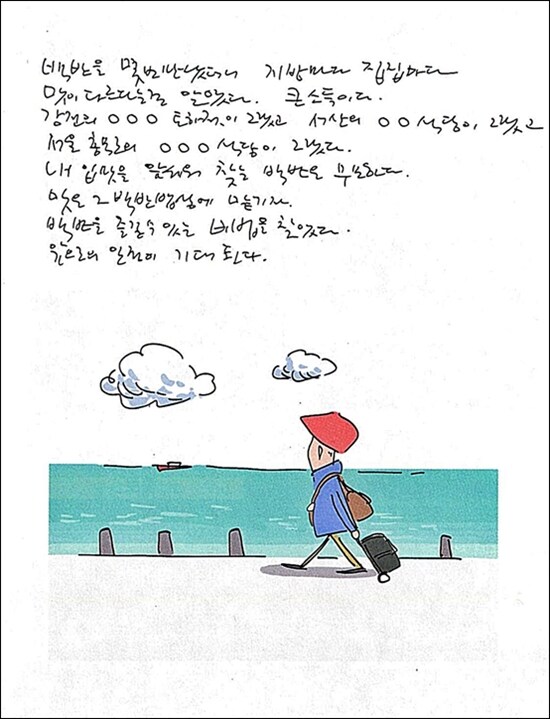 백반을 몇번 만났더니 지방마다 집집마다
맛이 다르다는걸 알았다. 큰 소득이다.
강진의 ○○○ 그랬고 서산의 ○○식당이 그랬고
서울 충무로의 ○○○ 식당이 그랬다.
내 입맛을 앞세워 찾는 백반은 무모하다.
맛은 그 백반밥상에 맡기자.
백반을 즐길 수 있는 비법을 찾았다.
앞으로의 일정이 기대된다.